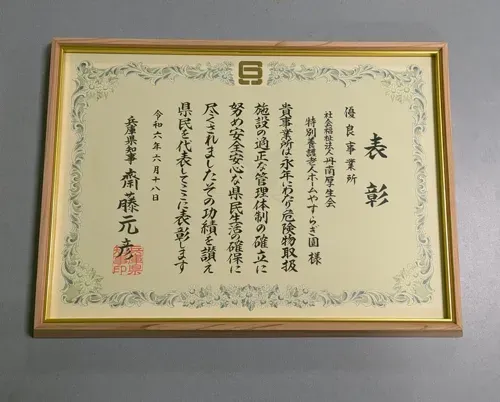 表彰
優良事業所
社会福祉法人丹南厚生会
特別養護老人ホームやすらぎ園 様
貴事業所は永年にわたり危険物取扱
施設の適正な管理体制の確立に
努め安全安心な県民生活の確保に
尽くされましたその功績を讃え
県民を代表してここに表彰します
令和六年六月十八日
兵庫県知事 齋藤元彦
兵庫県
知事印